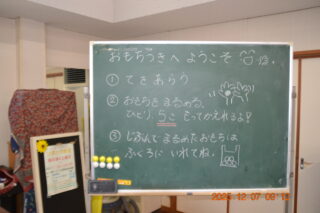 おもちつきへ ようこそ
① てをあらう
② おもちをまるめる。
ひとり 5こ もってかえれるよ!
③ じぶんでまるめたおもちは
ふくろに いれてね。